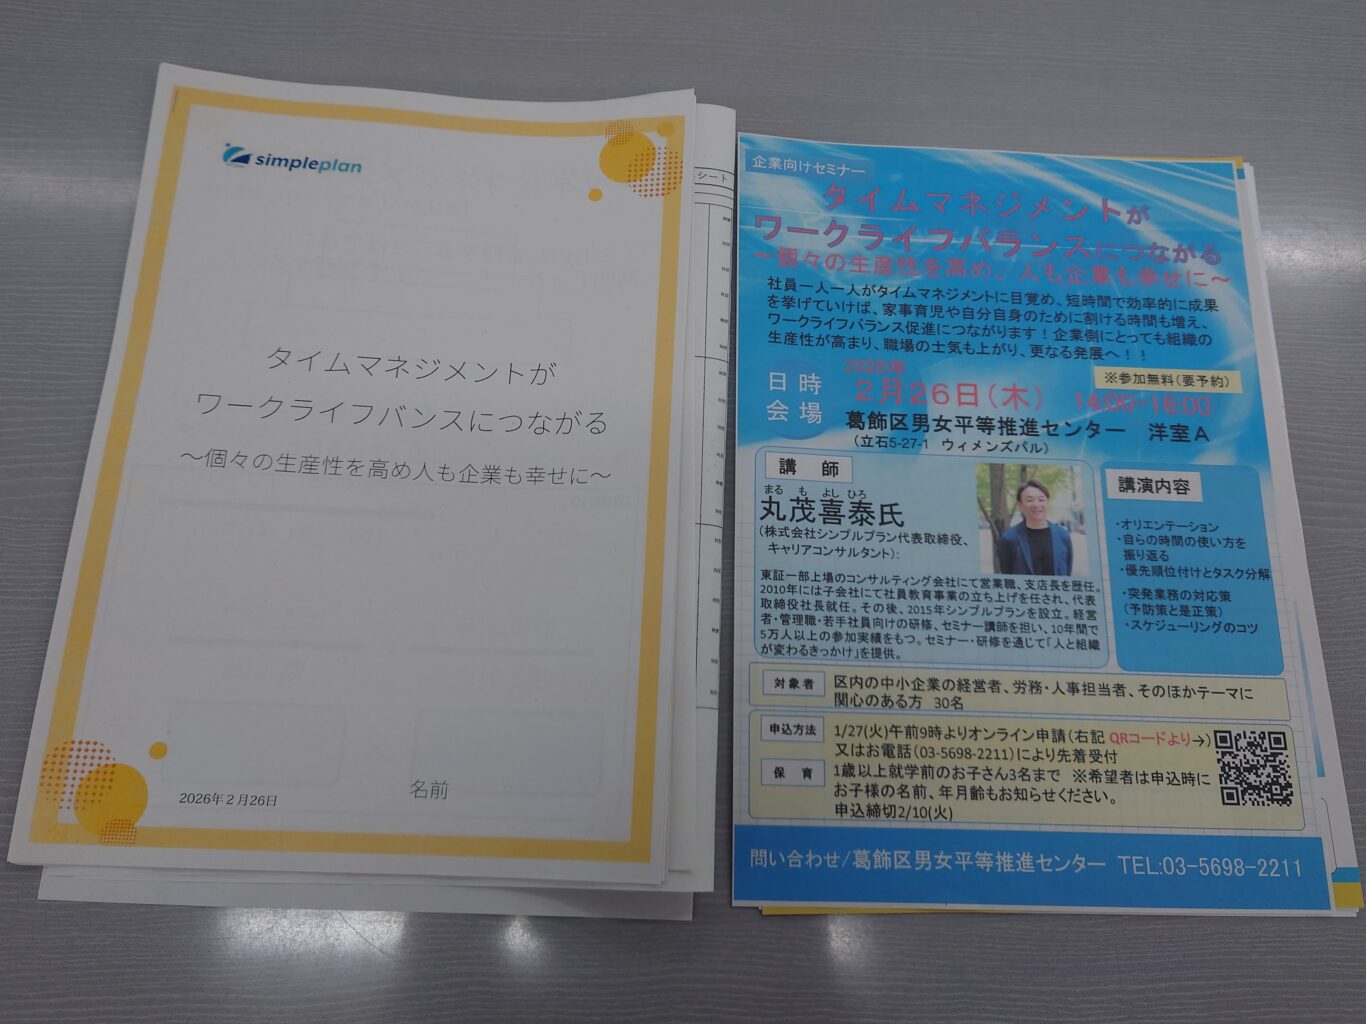 simpleplan
タイムマネジメントが
ワークライフバンスにつながる
～個々の生産性を高め人も企業も幸せに～
2026年2月26日
名前
シート
企業向けセミナー
タイムマネジメントが
ワークライフバランスにつながる
～個々の生産性を高め、人も企業も幸せに～
社員一人一人がタイムマネジメントに目覚め、短時間で効率的に成果
を挙げていけば、家事育児や自分自身のために割ける時間も増え、
ワークライフバランス促進につながります！企業側にとっても組織の
生産性が高まり、職場の士気も上がり、更なる発展へ！！
日時
2026年
2月26日(木) 14:00-16:00
※参加無料(要予約)
会場
葛飾区男女平等推進センター 洋室A
(立石5-27-1 ウィメンズパル)
講師
まる も よし ひろ
丸茂喜泰氏
(株式会社シンプルプラン代表取締役、
キャリアコンサルタント):
東証一部上場のコンサルティング会社にて営業職、支店長を歴任。
2010年には子会社にて社員教育事業の立ち上げを任され、代表
取締役社長就任。その後、2015年シンプルプランを設立。経営
者・管理職・若手社員向けの研修、セミナー講師を担い、10年間で
5万人以上の参加実績をもつ。セミナー・研修を通じて「人と組織
が変わるきっかけ」を提供。
講演内容
・オリエンテーション
・自らの時間の使い方を
振り返る
・優先順位付けとタスク分解
・突発業務の対応策
(予防策と是正策)
・スケジューリングのコツ
対象者
区内の中小企業の経営者、労務・人事担当者、そのほかテーマに
関心のある方 30名
申込方法
1/27(火)午前9時よりオンライン申請(右記 QRコードより→)
又はお電話(03-5698-2211)により先着受付
保育
1歳以上就学前のお子さん3名まで ※希望者は申込時に
お子様の名前、年月齢もお知らせください。
申込締切2/10(火)
問い合わせ/葛飾区男女平等推進センター TEL:03-5698-2211